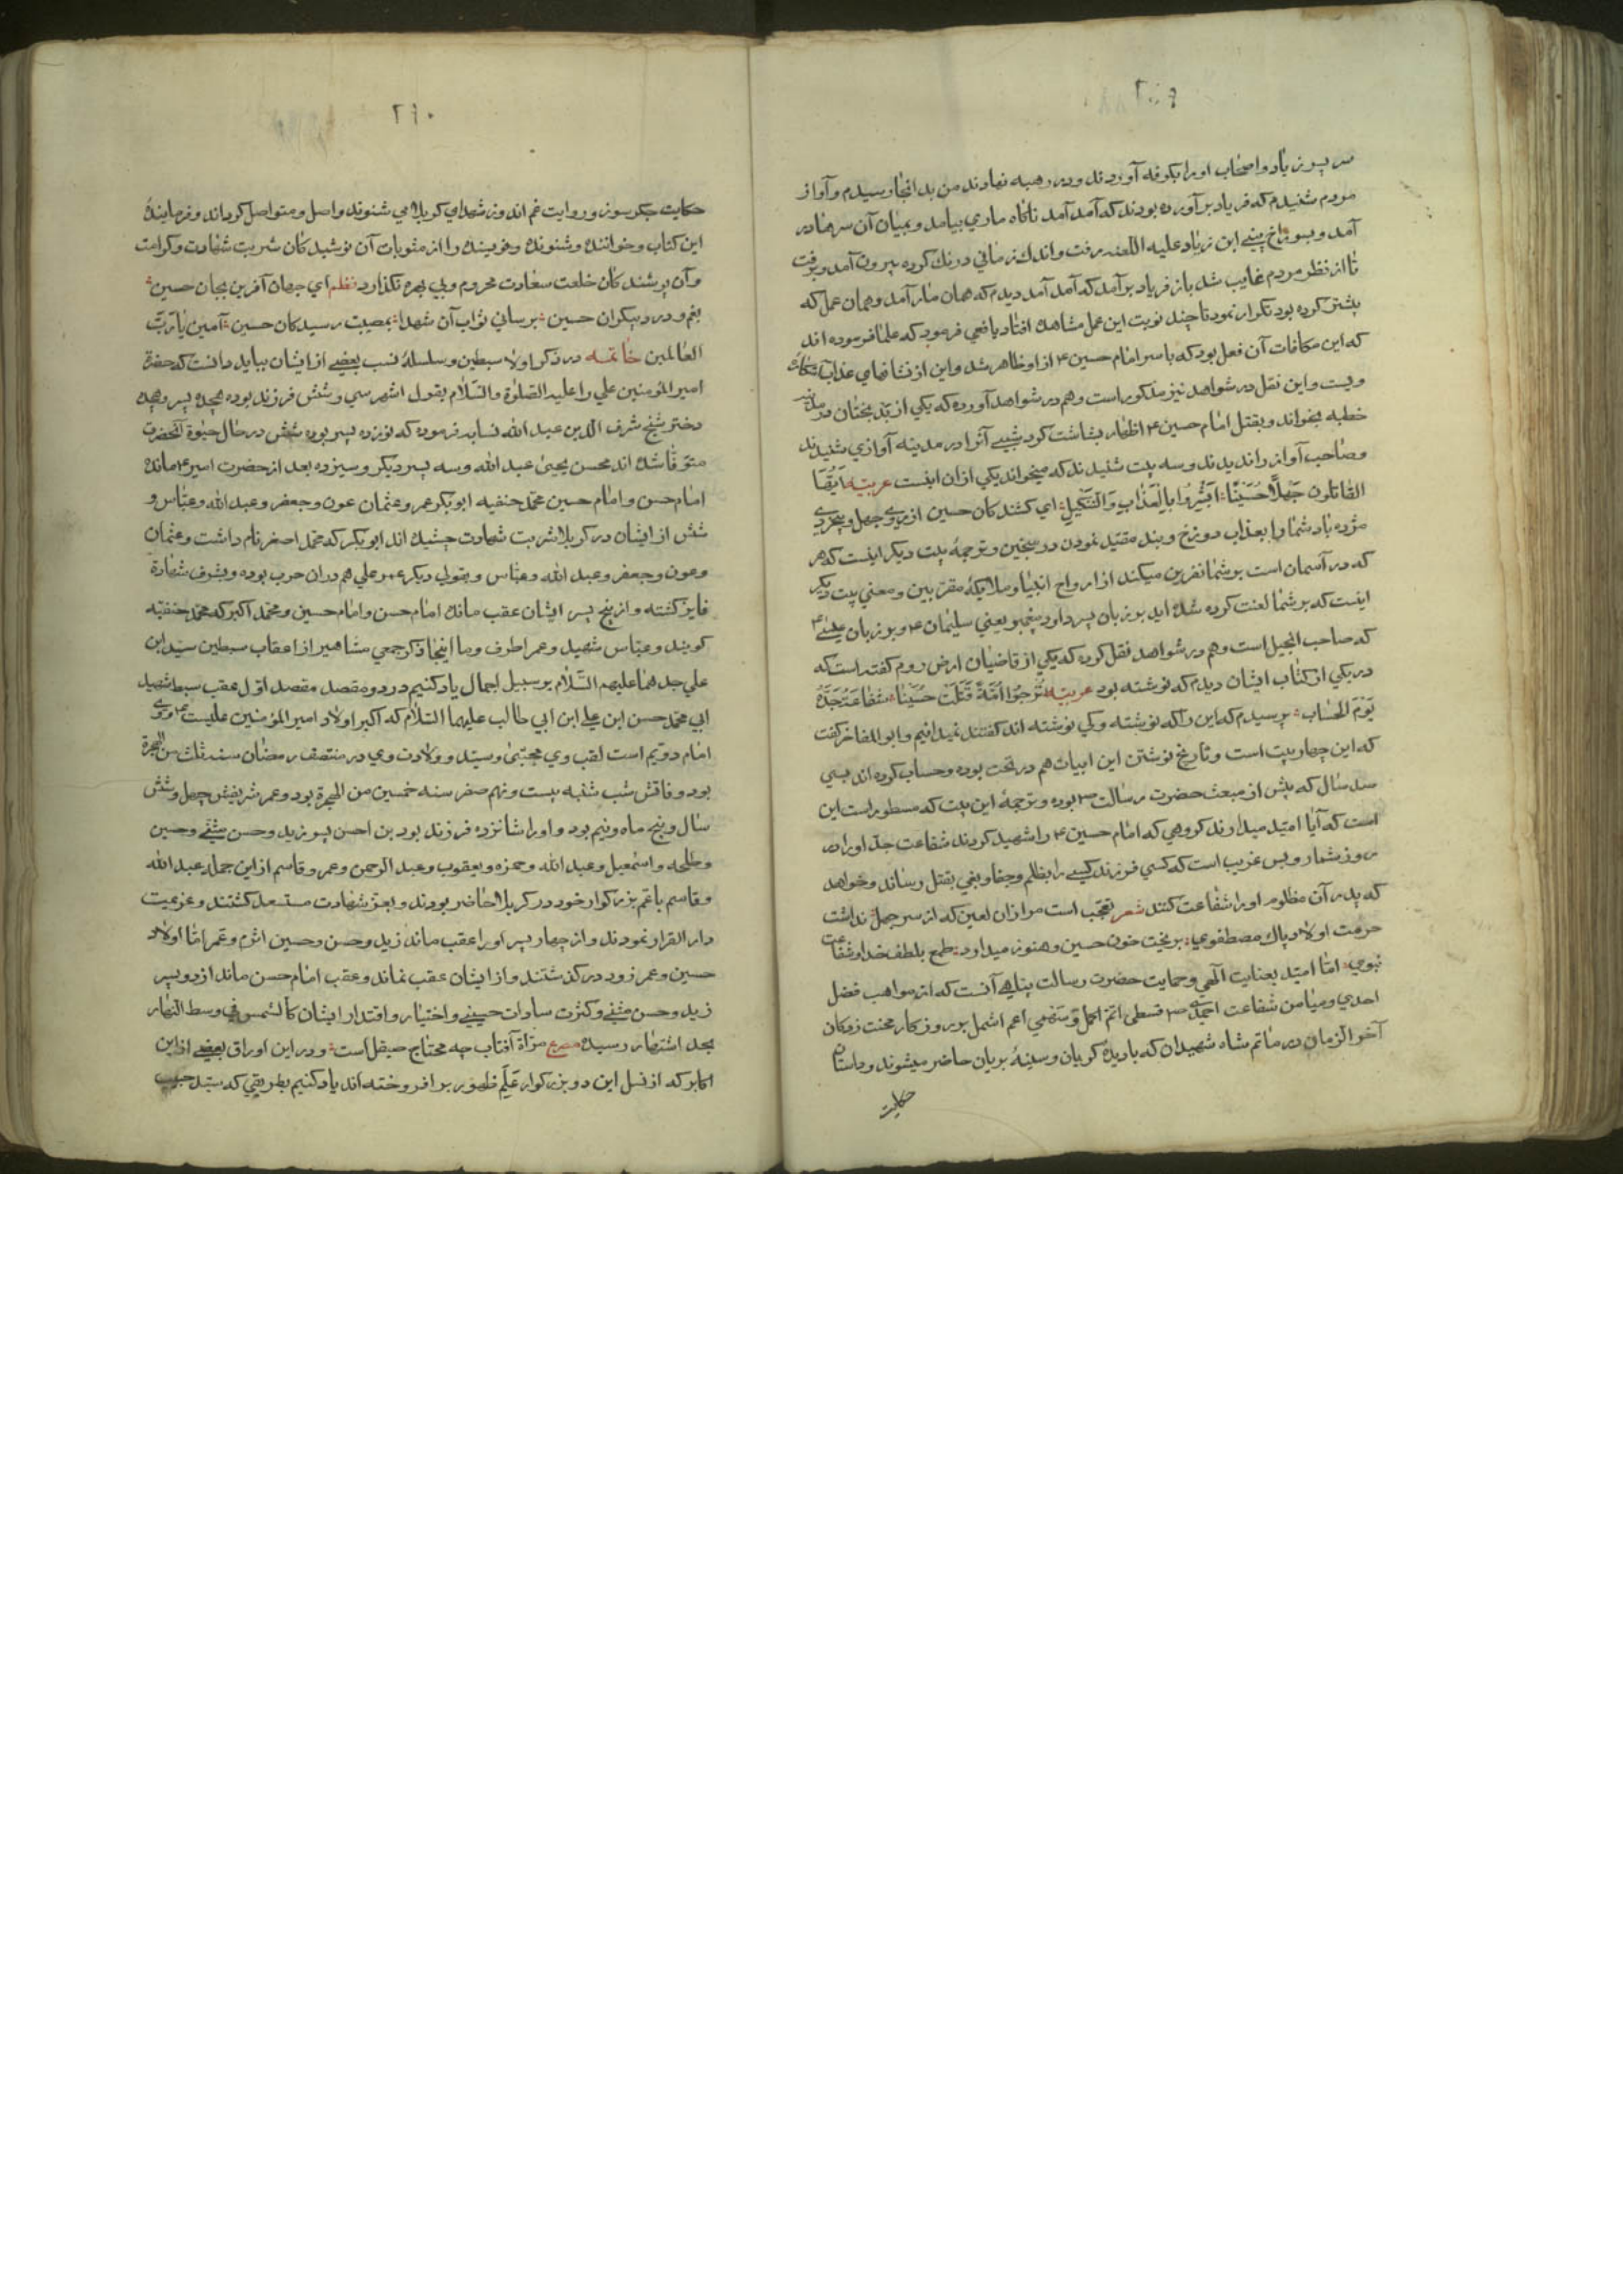 ۲۵۹
سر پسر زیاد و اصحاب او را بکوفه آوردند و در رحبه نهادند من بدانجا رسیدم و آواز
مردم شنیدم که فریاد برآورده بودند که آمد آمد ناگاه ماری بیامد و بمیان آن سرها در
آمد و بسوراخ بینی ابن زیاد علیه اللعنه رفت و اندک زمانی درنک کرده بیرون آمد و برفت
تا از نظر مردم غایب شد باز فریاد برآمد که آمد آمد دیدم که همان مار آمد و همان عمل که
پیشتر کرده بود تکرار نمود تا چند نوبت این عمل مشاهده افتاد یافعی فرمود که علما فرموده اند
که این مکافات آن فعل بود که با سر امام حسین ۴ از او ظاهر شد و این از نشانهای عذاب
ویست و این نقل در شواهد نیز مذکور است و هم در شواهد آورده که یکی از بدبختان در مدینه
خطبه بخواند و بقتل امام حسین ۴ اظهار بشاشت کرد شبی آنرا در مدینه آوازی شنیدند
و صاحب آواز را ندیدند و سه بیت شنیدند که میخواند یکی از ان اینست عربیه ایها
القاتلون جهلا حسینا ابشروا بالعذاب والتنکیل ای کشندکان حسین از روی جهل و بیخردی
مژده باد شما را بعذاب دوزخ و بند مقید نمودن در سجین و ترجمهٔ بیت دیکر اینست که هر
که در آسمان است بر شما نفرین میکند از ارواح انبیا و ملایکهٔ مقربین و معنی بیت دیکر
اینست که بر شما لعنت کرده شده اید بر زبان پسر داود پیغمبر یعنی سلیمان ۴ و بر زبان عیسی ۴
که صاحب انجیل است و هم در شواهد نقل کرده که یکی از قاضیان ارض روم کفته است که
در یکی از کتاب ایشان دیدم که نوشته بود عربیه ترجوا امة قتلت حسینا شفاعة جده
یوم الحساب پرسیدم که این را که نوشته و کی نوشته اند کفتند نمیدانیم و ابو المفاخر کفت
که این چهار بیت است و تاریخ نوشتن این ابیات هم در تحت بوده و حساب کرده اند بسی
صد سال که پیش از مبعث حضرت رسالت ص بوده و ترجمهٔ این بیت که مسطور است این
است که آیا امید میدارند کروهی که امام حسین ۴ را شهید کردند شفاعت جد او را در
روز شمار و بس غریب است که کسی فرزند کسی را بظلم و جفا و بغی بقتل رساند و خواهد
که پدر آن مظلوم او را شفاعت کند شعر تعجب است مرا زان لعین که از سر جهل نداشت
حرمت اولاد پاک مصطفوی بریخت خون حسین و هنوز میدارد طمع بلطف خدا و شفاعت
نبوی اما امید بعنایت الهی و حمایت حضرت رسالت پناهی آنست که از مواهب فضل
احدی و میامن شفاعت احمدی ص قسطی اتم اکمل و سهمی اعم اشمل بر روزکار محنت زدکان
آخر الزمان در ماتم شاه شهیدان که با دیدهٔ کریان و سینهٔ بریان حاضر میشوند و داستان
حکایت
۲۶۰
حکایت جکرسوز و روایت غم اندوز شهدای کربلا می شنوند واصل و متواصل کرداند و فرمایندهٔ
این کتاب و خواننده و شنونده و نویسنده را از مثوبات آن نوشیدکان شربت شهادت و کرامت
و آن پوشندکان خلعت سعادت محروم و بی بهره نکذارد نظم ای جهان آفرین بجان حسین
بغم و درد بیکران حسین برسانی ثواب آن شهدا بمصیبت رسیدکان حسین آمین یا رب
العالمین خاتمه در ذکر اولاد سبطین و سلسلهٔ نسب بعضی از ایشان بباید دانست که حضرة
امیر المؤمنین علی را علیه الصلوة والسلام بقول اشهر سی و شش فرزند بوده هجده پسر و هجده
دختر شیخ شرف الدین عبد الله نسابه فرموده که نوزده پسر بوده شش در حال حیوة آنحضرت
متوفا شده اند محسن یحیی عبد الله و سه پسر دیکر و سیزده بعد از حضرت امیر ۴ مانده
امام حسن و امام حسین محمد حنفیه ابوبکر عمر و عثمان عون و جعفر و عبد الله و عباس و
شش از ایشان در کربلا شربت شهادت چشیده اند ابوبکر که محمد اصغر نام داشت و عثمان
و عون و جعفر و عبد الله و عباس و بقولی دیکر عمر و علی هم در ان حرب بوده و بشرف شهادة
فایز کشته و از پنج پسر ایشان عقب مانده امام حسن و امام حسین و محمد اکبر که محمد حنفیه
کویند و عباس شهید و عمر اطرف و ما اینجا ذکر جمعی مشاهیر از اعقاب سبطین سیدین
علی جدهما علیهم السلام بر سبیل اجمال یاد کنیم در دو مقصد مقصد اول عقب سبط شهید
ابی محمد حسن ابن علی ابن ابی طالب علیهما السلام که اکبر اولاد امیر المؤمنین علیست ۴ و وی
امام دویم است لقب وی مجتبی و سید و ولادت وی در منتصف رمضان سنه ثلث من الهجرة
بود و فاتش شب شنبه بیست و نهم صفر سنه خمسین من الهجرة بود و عمر شریفش چهل و شش
سال و پنج ماه و نیم بود و او را شانزده فرزند بود بن احسن پسر زید و حسن مثنی و حسین
و طلحه و اسمعیل و عبد الله و حمزه و یعقوب و عبد الرحمن و عمر و قاسم از این جمله عبد الله
و قاسم با عم بزرکوار خود در کربلا حاضر بودند و بعز شهادت مستسعد کشتند و عزیمت
دار القرار نمودند و از چهار پسر او را عقب ماند زید و حسن و حسین اثرم و عمر اما اولاد
حسین و عمر زود درکذشتند و از ایشان عقب نماند و عقب امام حسن ماند از دو پسر
زید و حسن مثنی و کثرت سادات حسینی و اختیار و اقتدار ایشان کالشمس فی وسط النهار
بحد اشتهار رسیده مصرع مرآة آفتاب چه محتاج صیقل است و در این اوراق بعضی از این
اکابر که از نسل این دو بزرکوار علم ظهور بر افروخته اند یاد کنیم بطریقی که سید